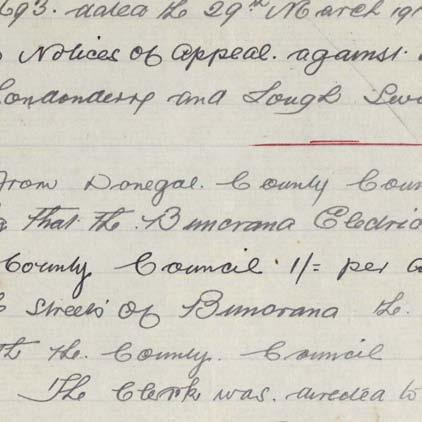 693. dated the 29th March 191
Notices of Appeal. against
Londonderry and Lough Swi
From Donegal. County Coun
that the. Buncrana Electric
County Council 1/= per
Streets of Buncrana the.
the. County. Council
The Clerk was. directed to